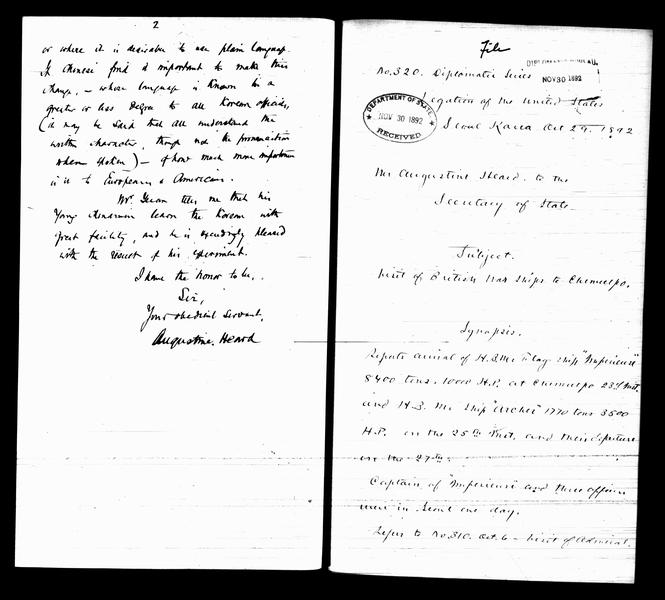 2
or where it is desirable to use plain language.
If Chinese find it important to make this
change, – whose language is known in a
greater or less degree to all Korean officials,
(it may be said that all understand the
written character, though not the pronunciation
when spoken) – of how much more importance
is it to Europeans & Americans.
Mr. tells me that his
young Chinamen learn the Korean with
great facility, and he is exceedingly pleased
with the result of his experiment.
I have the honor to be,
Sir,
Your obedient servant,
Augustine Heard
File
No. 320. Diplomatic Series
DIPLOMATIC BUREAU,
NOV 30 1892
Legation of the United States
DEPARTMENT OF STATE
NOV 30 1892
RECEIVED
Seoul Korea Oct 29. 1892
Mr Augustine Heard to the
Secretary of State.
Subject.
Visit of British War Ships to Chemulpo.
Synopsis.
Reports arrival of H.B.M's Flag Ship "Imperieuse"
8400 tons. 10000 H.P. at Chemulpo 23d Inst.
and H.B.M's Ship "Archer" 1770 tons 3500
H.P. on the 25th Inst. and their departure
on the 27th.
Captain of "Imperieuse" and three officers
were in Seoul one day.
Refers to No. 310. Oct. 6 – Visit of Admiral.